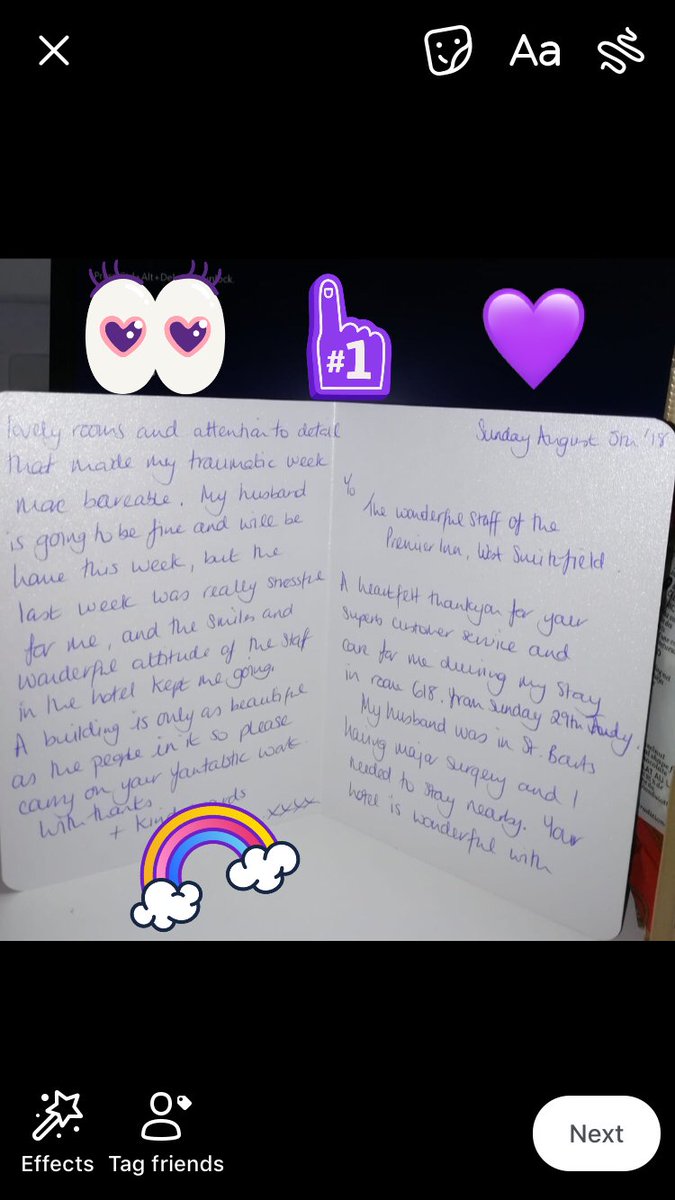 Aa
#1
Sunday August 5th '18
To
The wonderful staff of the
Premier Inn, West Smithfield
A heartfelt thankyou for your
superb customer service and
care for me during my stay
in room 618. from Sunday 29th July.
My husband was in St. Barts
having major surgery and I
needed to stay nearby. Your
hotel is wonderful with
lovely rooms and attention to detail
that made my traumatic week
mac bareable. My husband
is going to be fine and will be
home this week, but the
last week was really stressful
for me, and the smiles and
wonderful attitude of the staff
in the hotel kept me going.
A building is only as beautiful
as the people in it so please
carry on your fantastic work.
With thanks
+ Kind xxxx
Effects
Tag friends
Next